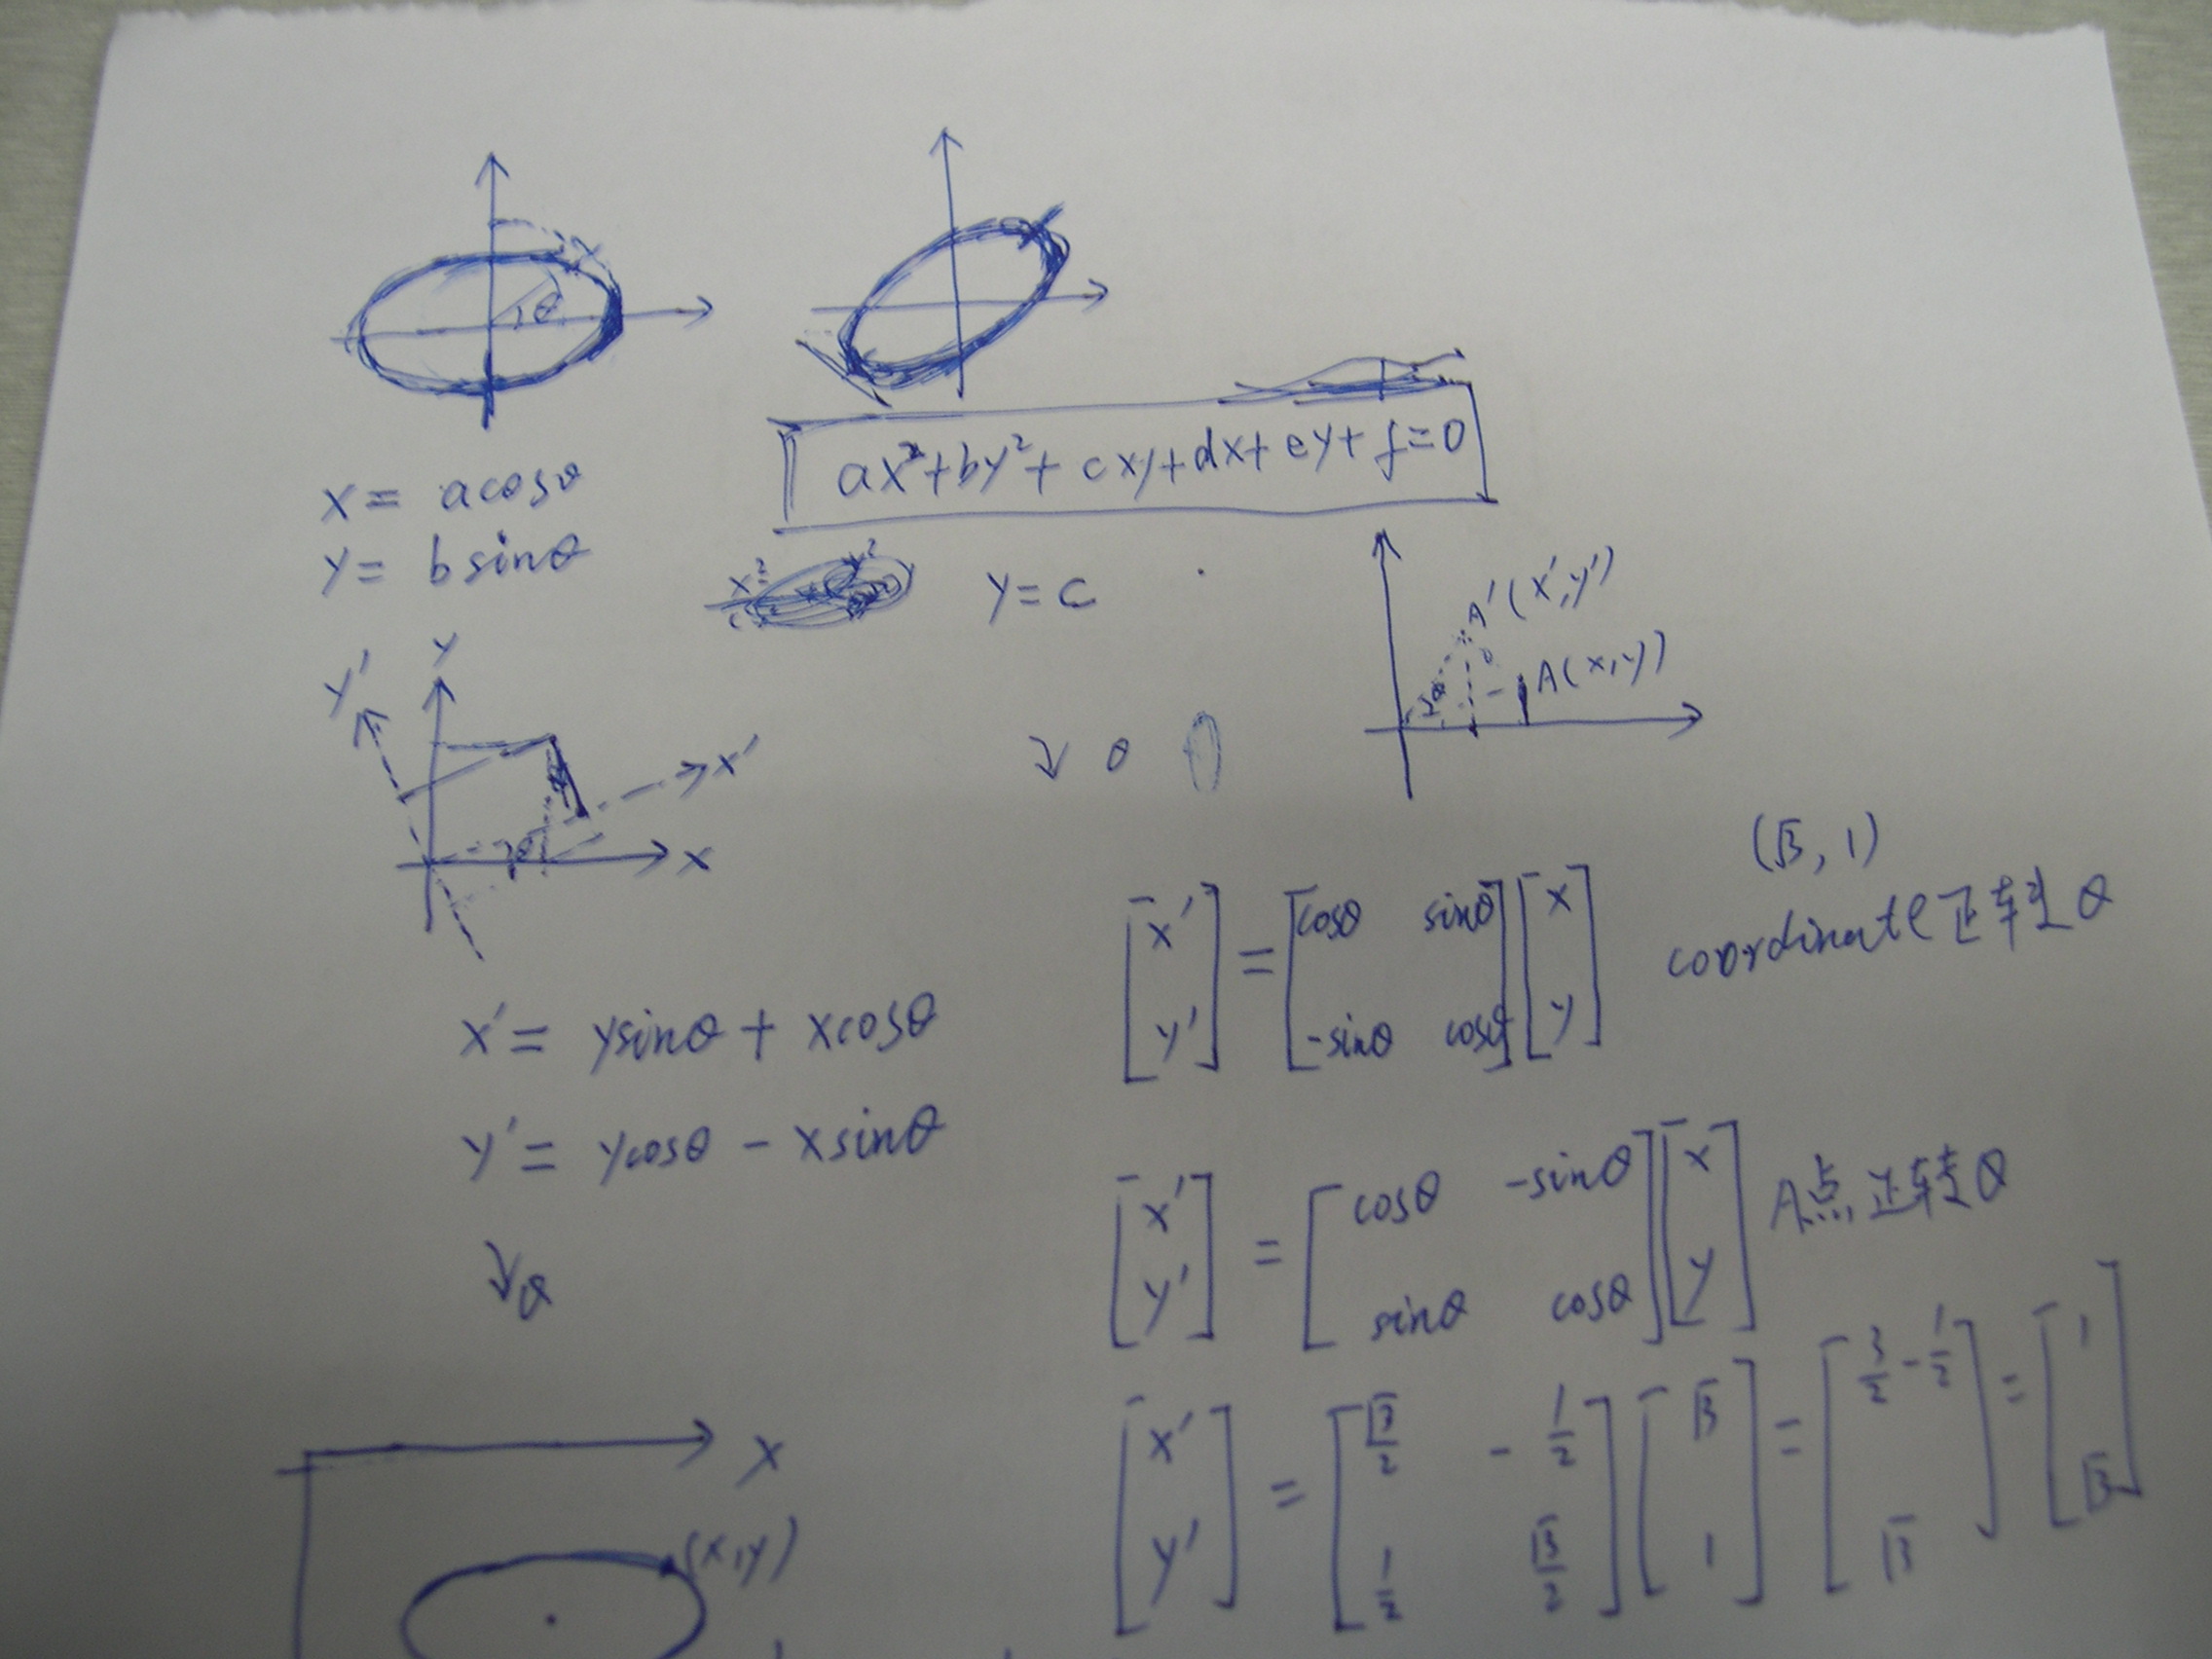 θ
ax²+by²+cxy+dx+ey+f=0
x= acosθ
y= bsinθ
x² y²
y=c
A'(x',y')
A(x,y)
θ
y' y
x'
x
θ
(√3, 1)
[x' y'] = [cosθ sinθ -sinθ cosθ] [x y] coordinate正转θ
x'= ysinθ + xcosθ
y'= ycosθ - xsinθ
[x' y'] = [cosθ -sinθ sinθ cosθ] [x y] A点正转θ
↓θ
[x' y'] = [√3/2 -1/2 1/2 √3/2] [√3 1] = [3/2-1/2 √3] = [1 √3]
x
(x,y)